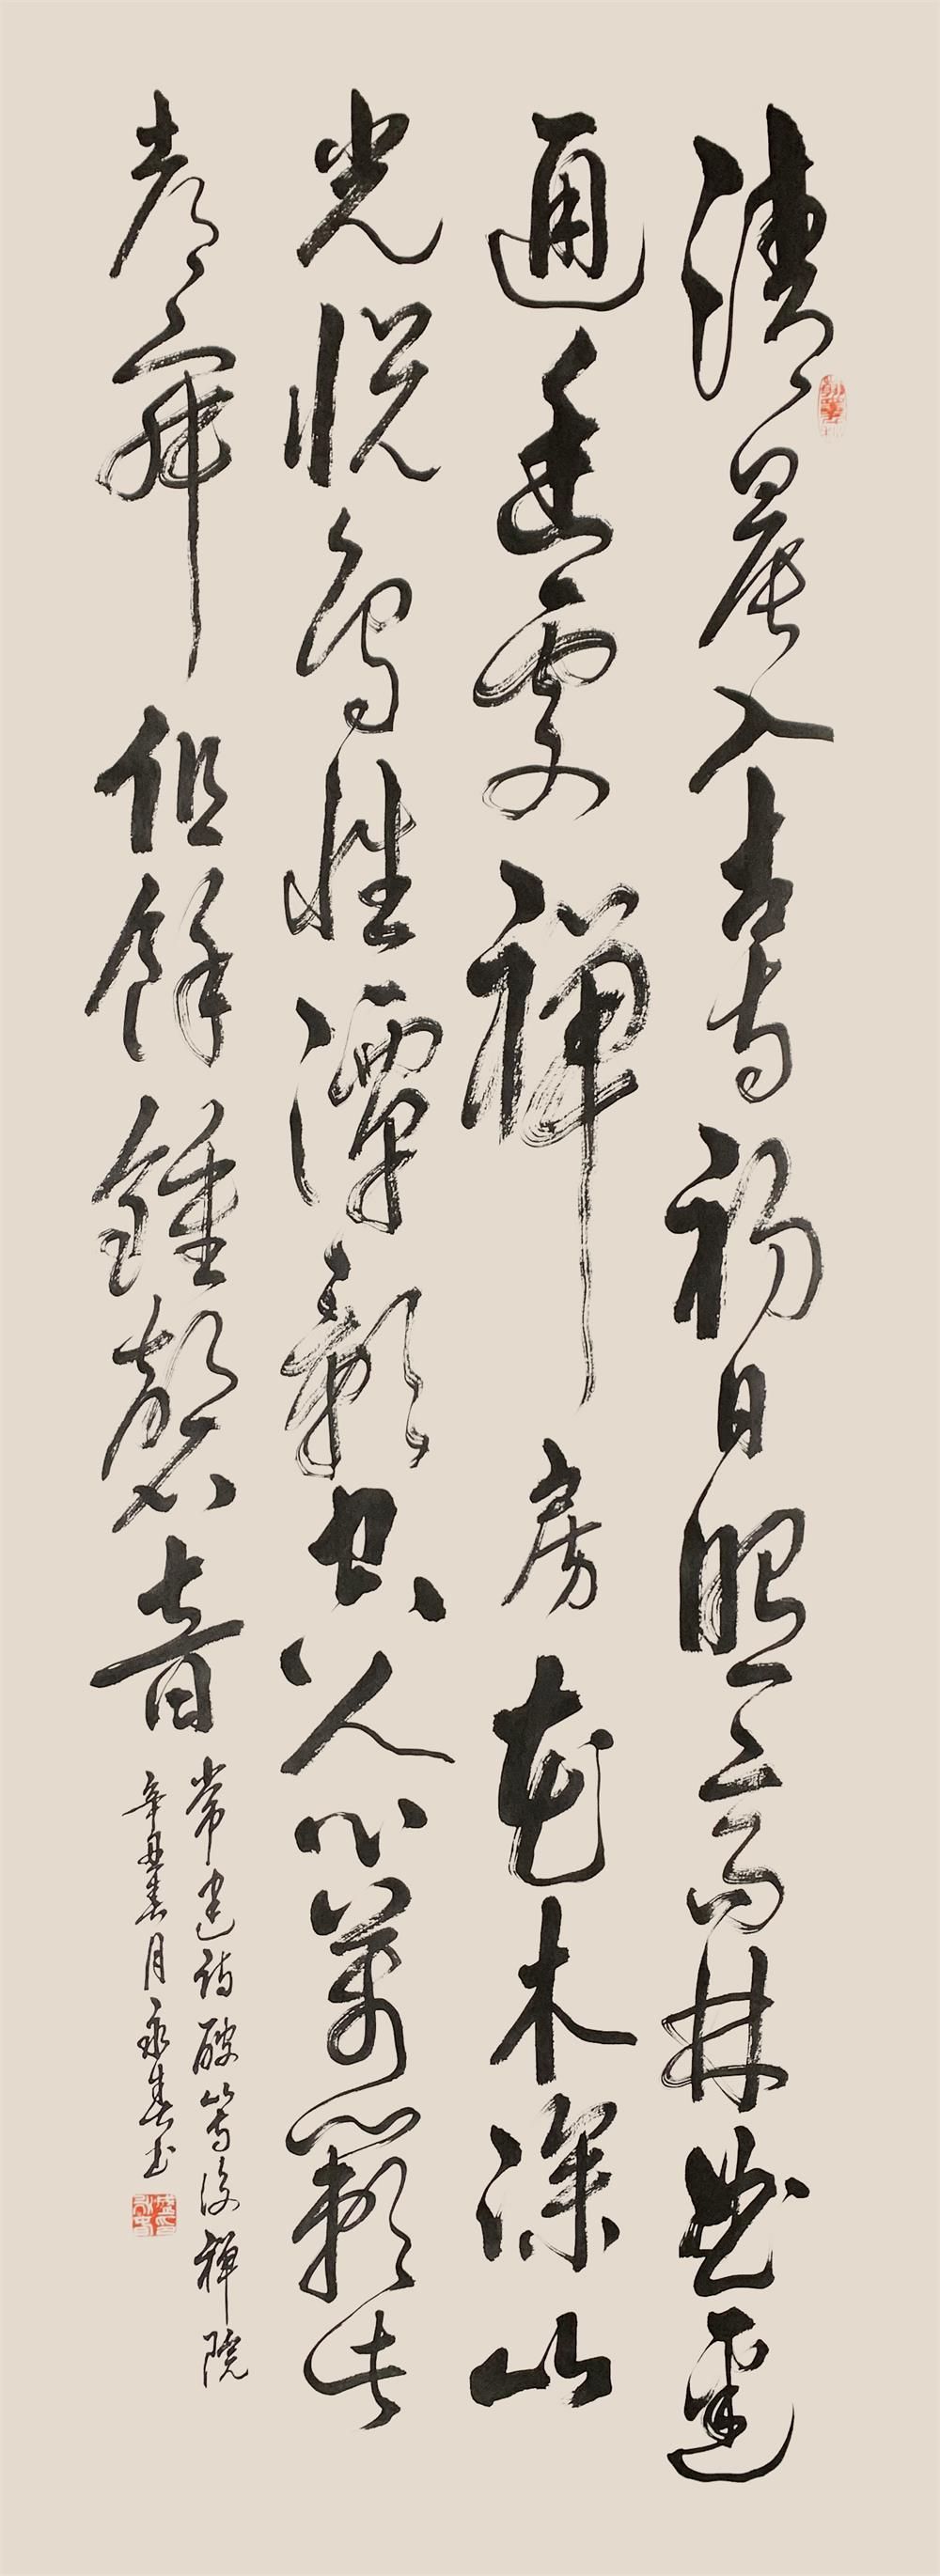 清晨入古寺初日照高林曲逕
通幽處禪房花木深山
光悅鳥性潭影空人心萬籟此
都寂但餘鍾磬音
常建詩破山寺後禪院
辛丑春月永春书